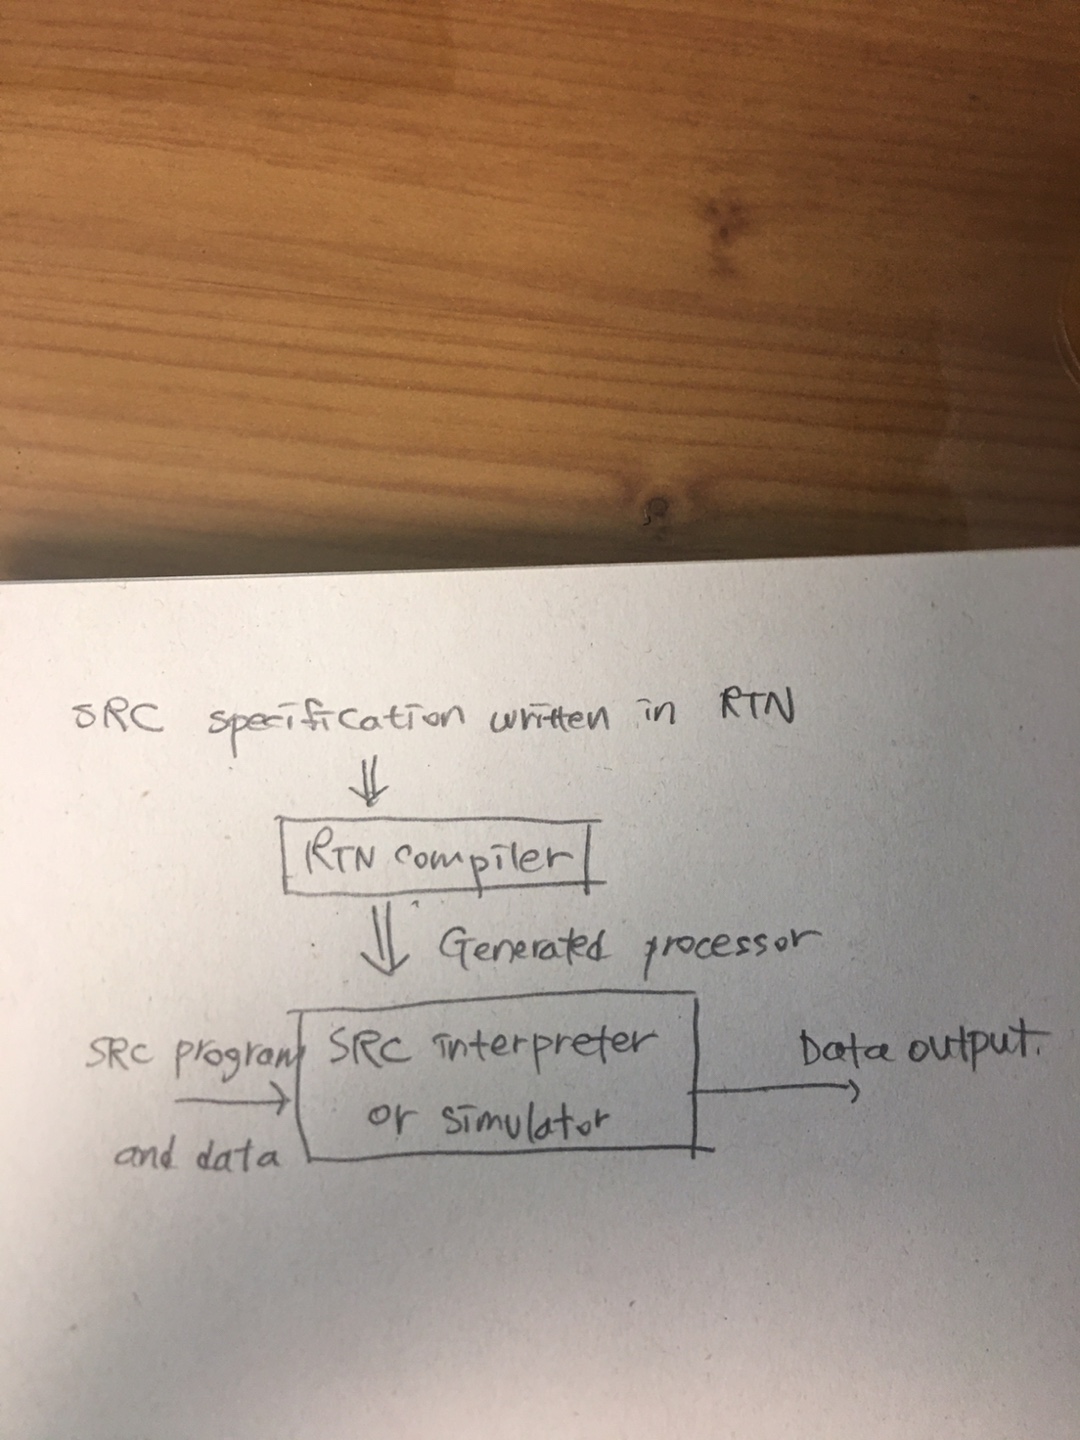 SRC specification written in RTN
RTN compiler
Generated processor
SRC program
and data
SRC interpreter
or simulator
Data output.